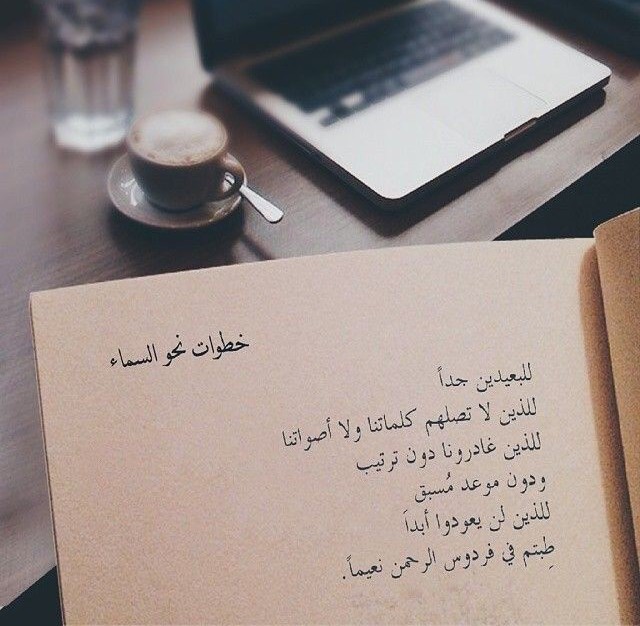 خطوات نحو السماء
للبعيدين جداً
للذين لا تصلهم كلماتنا ولا أصواتنا
للذين غادرونا دون ترتيب
ودون موعد مُسبق
للذين لن يعودوا أبداَ
طِبتم في فردوس الرحمن نعيماً.